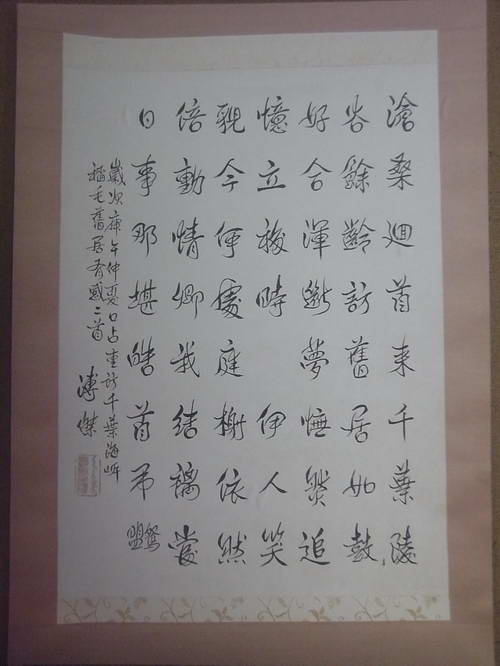 滄桑迴首来千葉陵
谷餘齡訪舊居如鼓
好合渾斷夢憮然追
憶立移時 伊人笑
靚今何處庭榭依然
倍動情卿我結褵當
日事那堪皓首弔鴛盟
歲次庚午仲夏口占重訪千葉海岸
稲毛舊居有感二首
溥傑